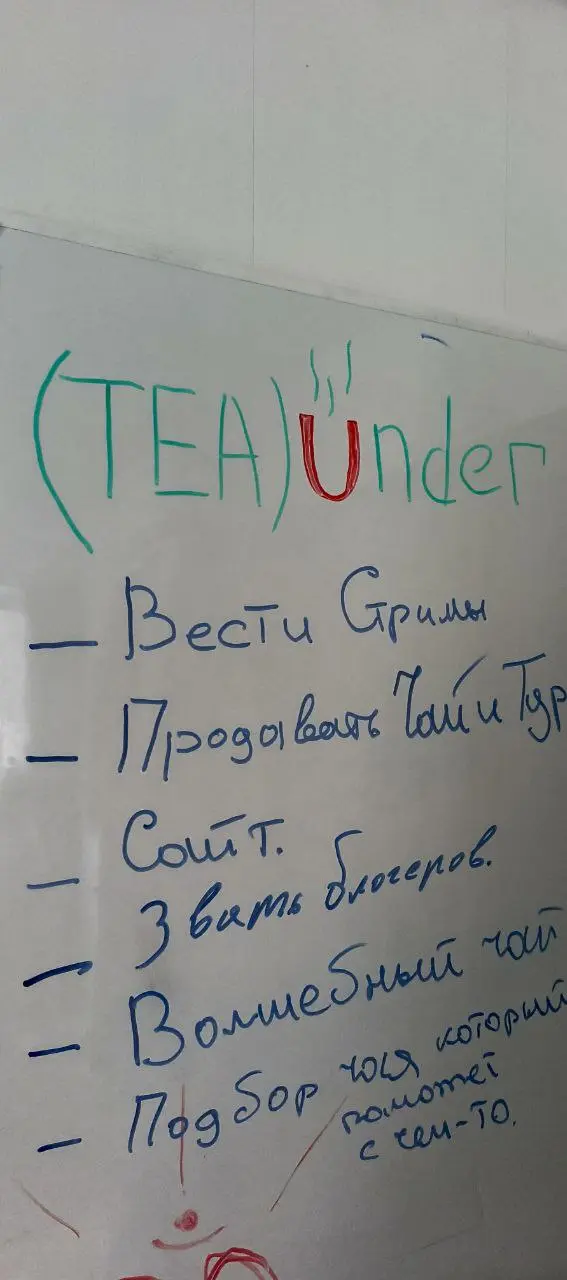 (TEA)Under
— Вести Стримы
— Продавать Чай и Тур
— Сайт.
— Звать блогеров.
— Волшебный чай
— Подбор чая который
поможет
с чем-то.